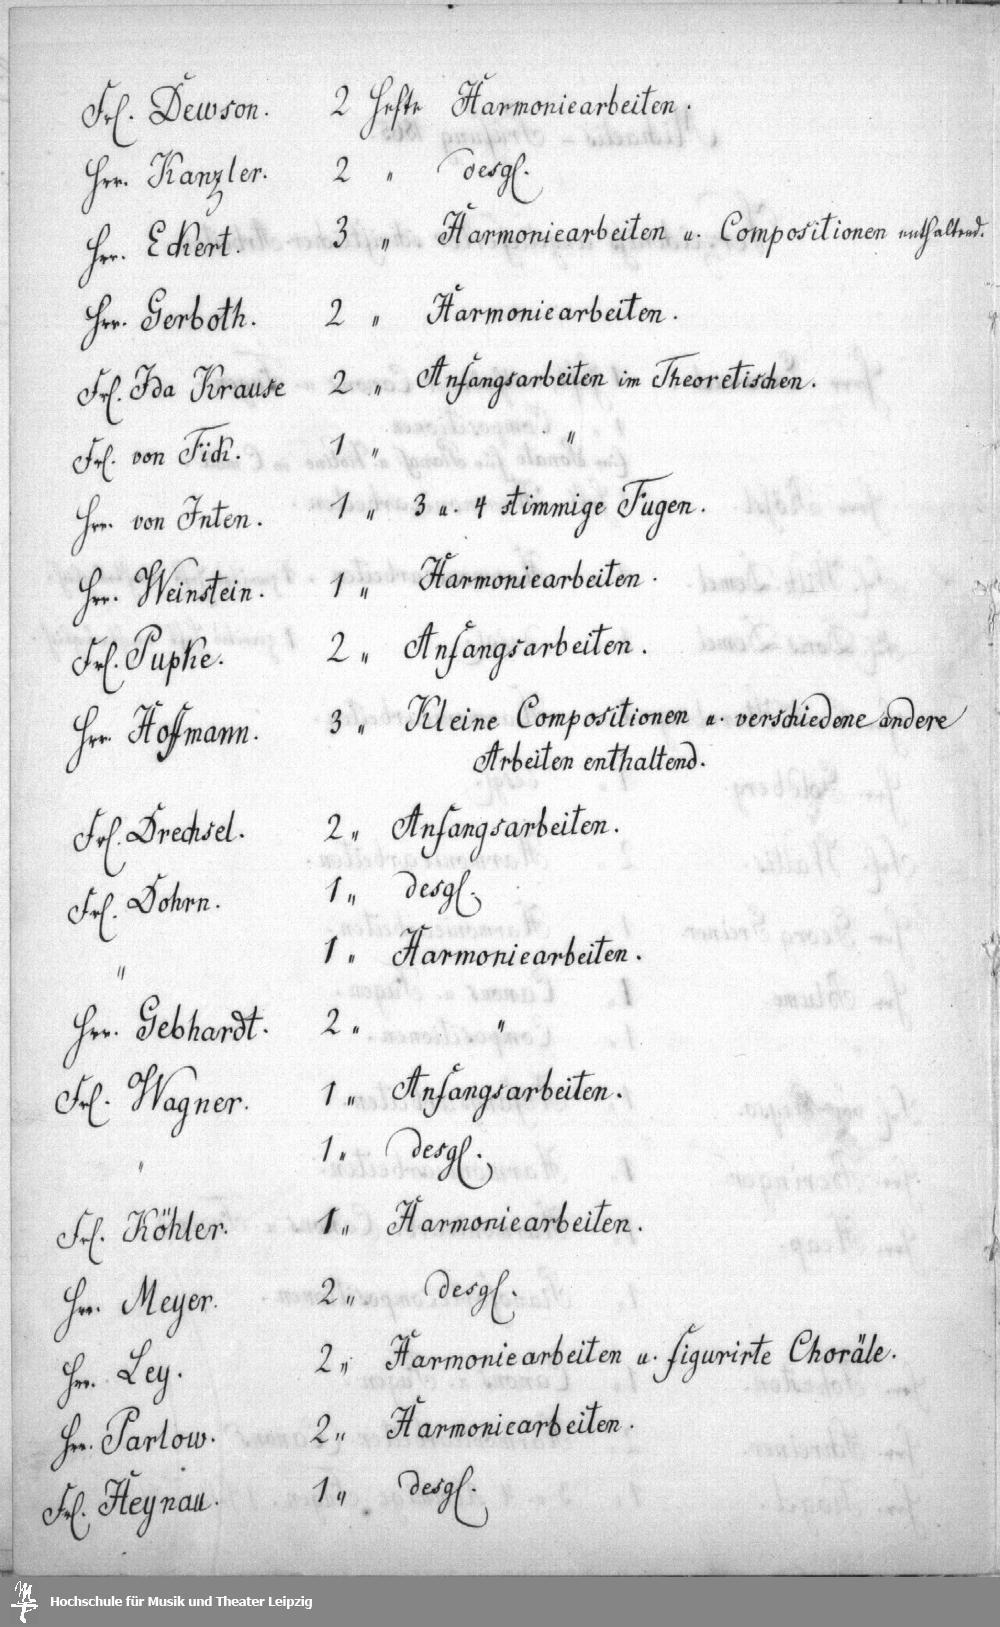 Frl. Dewson. 2 Hefte Harmoniearbeiten.
Hrr. Kanzler. 2 " desgl.
Hrr. Eckert. 3 " Harmoniearbeiten u. Compositionen enthaltend.
Hrr. Gerboth. 2 " Harmoniearbeiten.
Frl. Ida Krause 2 " Anfangsarbeiten im Theoretischen.
Frl. von Fick. 1 " "
Hrr. von Inten. 1 " 3 u. 4 stimmige Fugen.
Hrr. Weinstein. 1 " Harmoniearbeiten.
Frl. Pupke. 2 " Anfangsarbeiten.
Hrr. Hoffmann. 3 " Kleine Compositionen u. verschiedene andere
Arbeiten enthaltend.
Frl. Drechsel. 2 " Anfangsarbeiten.
Frl. Dohrn. 1 " desgl.
" 1 " Harmoniearbeiten.
Hrr. Gebhardt. 2 " "
Frl. Wagner. 1 " Anfangsarbeiten.
" 1 " desgl.
Frl. Köhler. 1 " Harmoniearbeiten.
Hrr. Meyer. 2 " desgl.
Hrr. Ley. 2 " Harmoniearbeiten u. figurirte Choräle.
Hrr. Parlow. 2 " Harmoniearbeiten.
Frl. Heynau. 1 " desgl.
Hochschule für Musik und Theater Leipzig